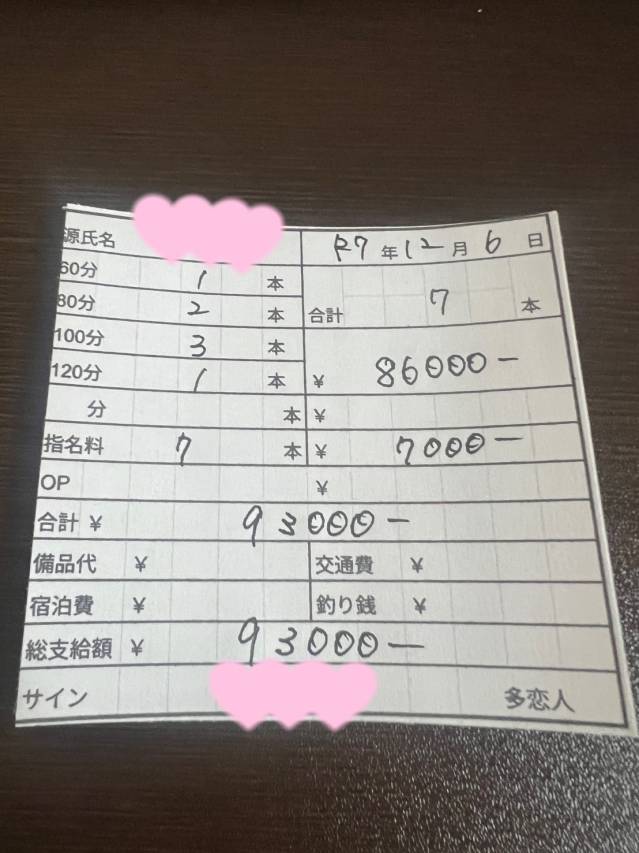 源氏名 R7年12月6日
60分 1 本
80分 2 本 合計 7 本
100分 3 本
120分 1 本 ¥ 86000-
分 本 ¥
指名料 7 本 ¥ 7000-
OP ¥
合計 ¥ 93000-
備品代 ¥ 交通費 ¥
宿泊費 ¥ 釣り銭 ¥
総支給額 ¥ 93000-
サイン 多恋人